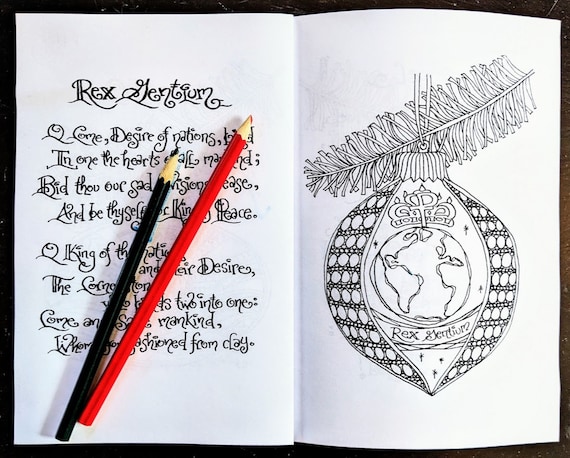 Rex Gentium
O Come, Desire of nations, bind
In one the hearts of all mankind;
Bid thou our sad divisions cease,
And be thyself our King of Peace.
O King of the nations,
and their Desire,
The Cornerstone
who binds two into one:
Come and save mankind,
Whom you fashioned from clay.
Rex Gentium